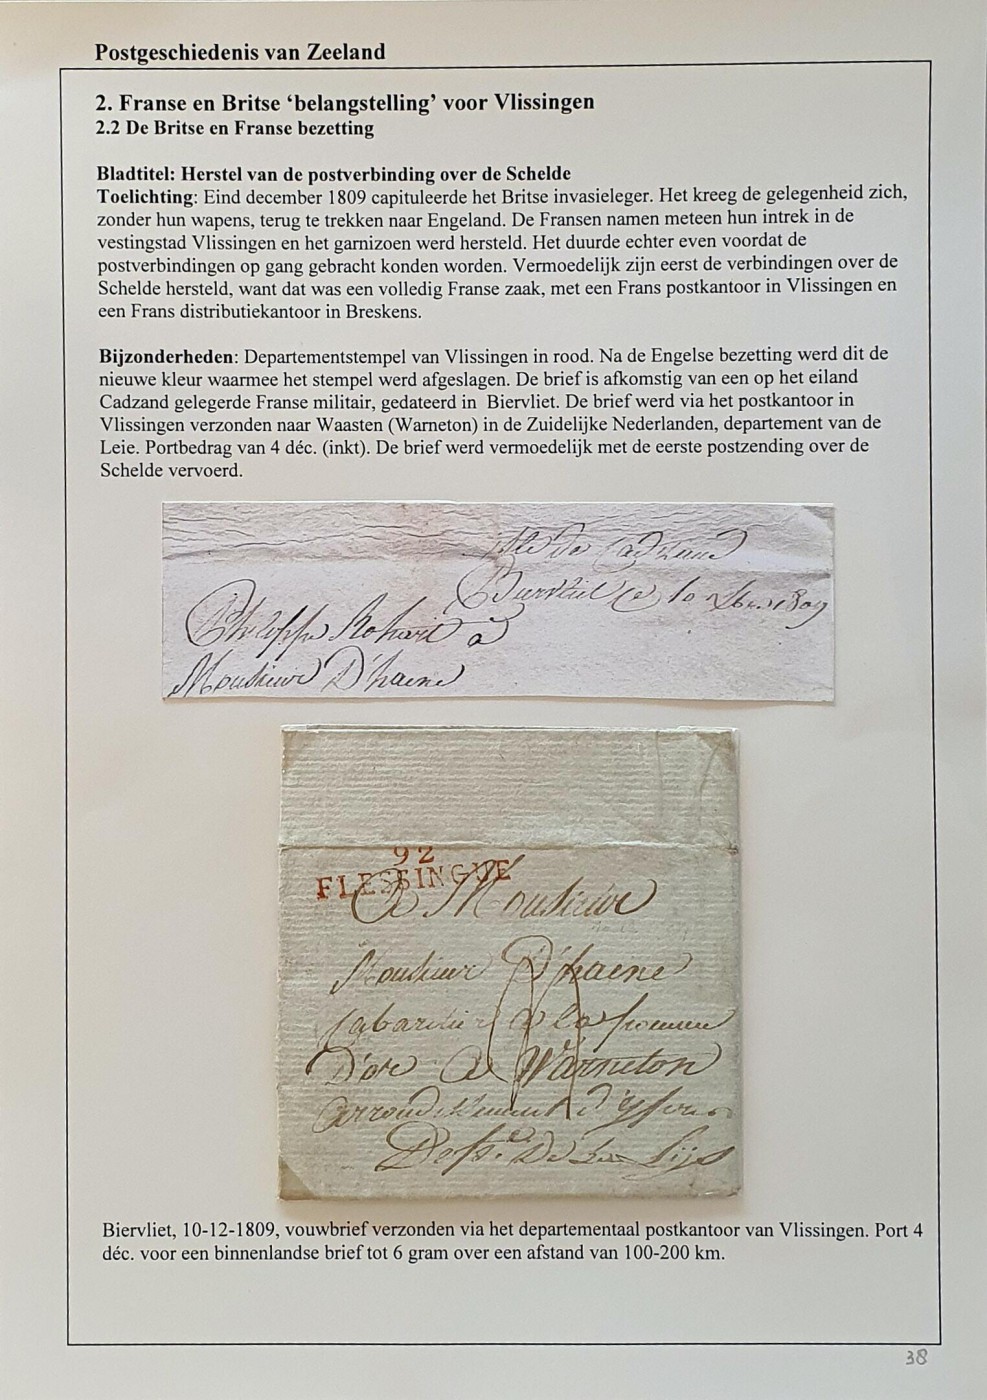 Postgeschiedenis van Zeeland
2. Franse en Britse ‘belangstelling’ voor Vlissingen
2.2 De Britse en Franse bezetting
Bladtitel: Herstel van de postverbinding over de Schelde
Toelichting: Eind december 1809 capituleerde het Britse invasieleger. Het kreeg de gelegenheid zich,
zonder hun wapens, terug te trekken naar Engeland. De Fransen namen meteen hun intrek in de
vestingstad Vlissingen en het garnizoen werd hersteld. Het duurde echter even voordat de
postverbindingen op gang gebracht konden worden. Vermoedelijk zijn eerst de verbindingen over de
Schelde hersteld, want dat was een volledig Franse zaak, met een Frans postkantoor in Vlissingen en
een Frans distributiekantoor in Breskens.
Bijzonderheden: Departementstempel van Vlissingen in rood. Na de Engelse bezetting werd dit de
nieuwe kleur waarmee het stempel werd afgeslagen. De brief is afkomstig van een op het eiland
Cadzand gelegerde Franse militair, gedateerd in Biervliet. De brief werd via het postkantoor in
Vlissingen verzonden naar Waasten (Warneton) in de Zuidelijke Nederlanden, departement van de
Leie. Portbedrag van 4 déc. (inkt). De brief werd vermoedelijk met de eerste postzending over de
Schelde vervoerd.
1809
à
D'haene
92
FLESSINGUE
A Monsieur
Monsieur D'haene
D'or A Warneton
De La Lijs
Biervliet, 10-12-1809, vouwbrief verzonden via het departementaal postkantoor van Vlissingen. Port 4
déc. voor een binnenlandse brief tot 6 gram over een afstand van 100-200 km.
38